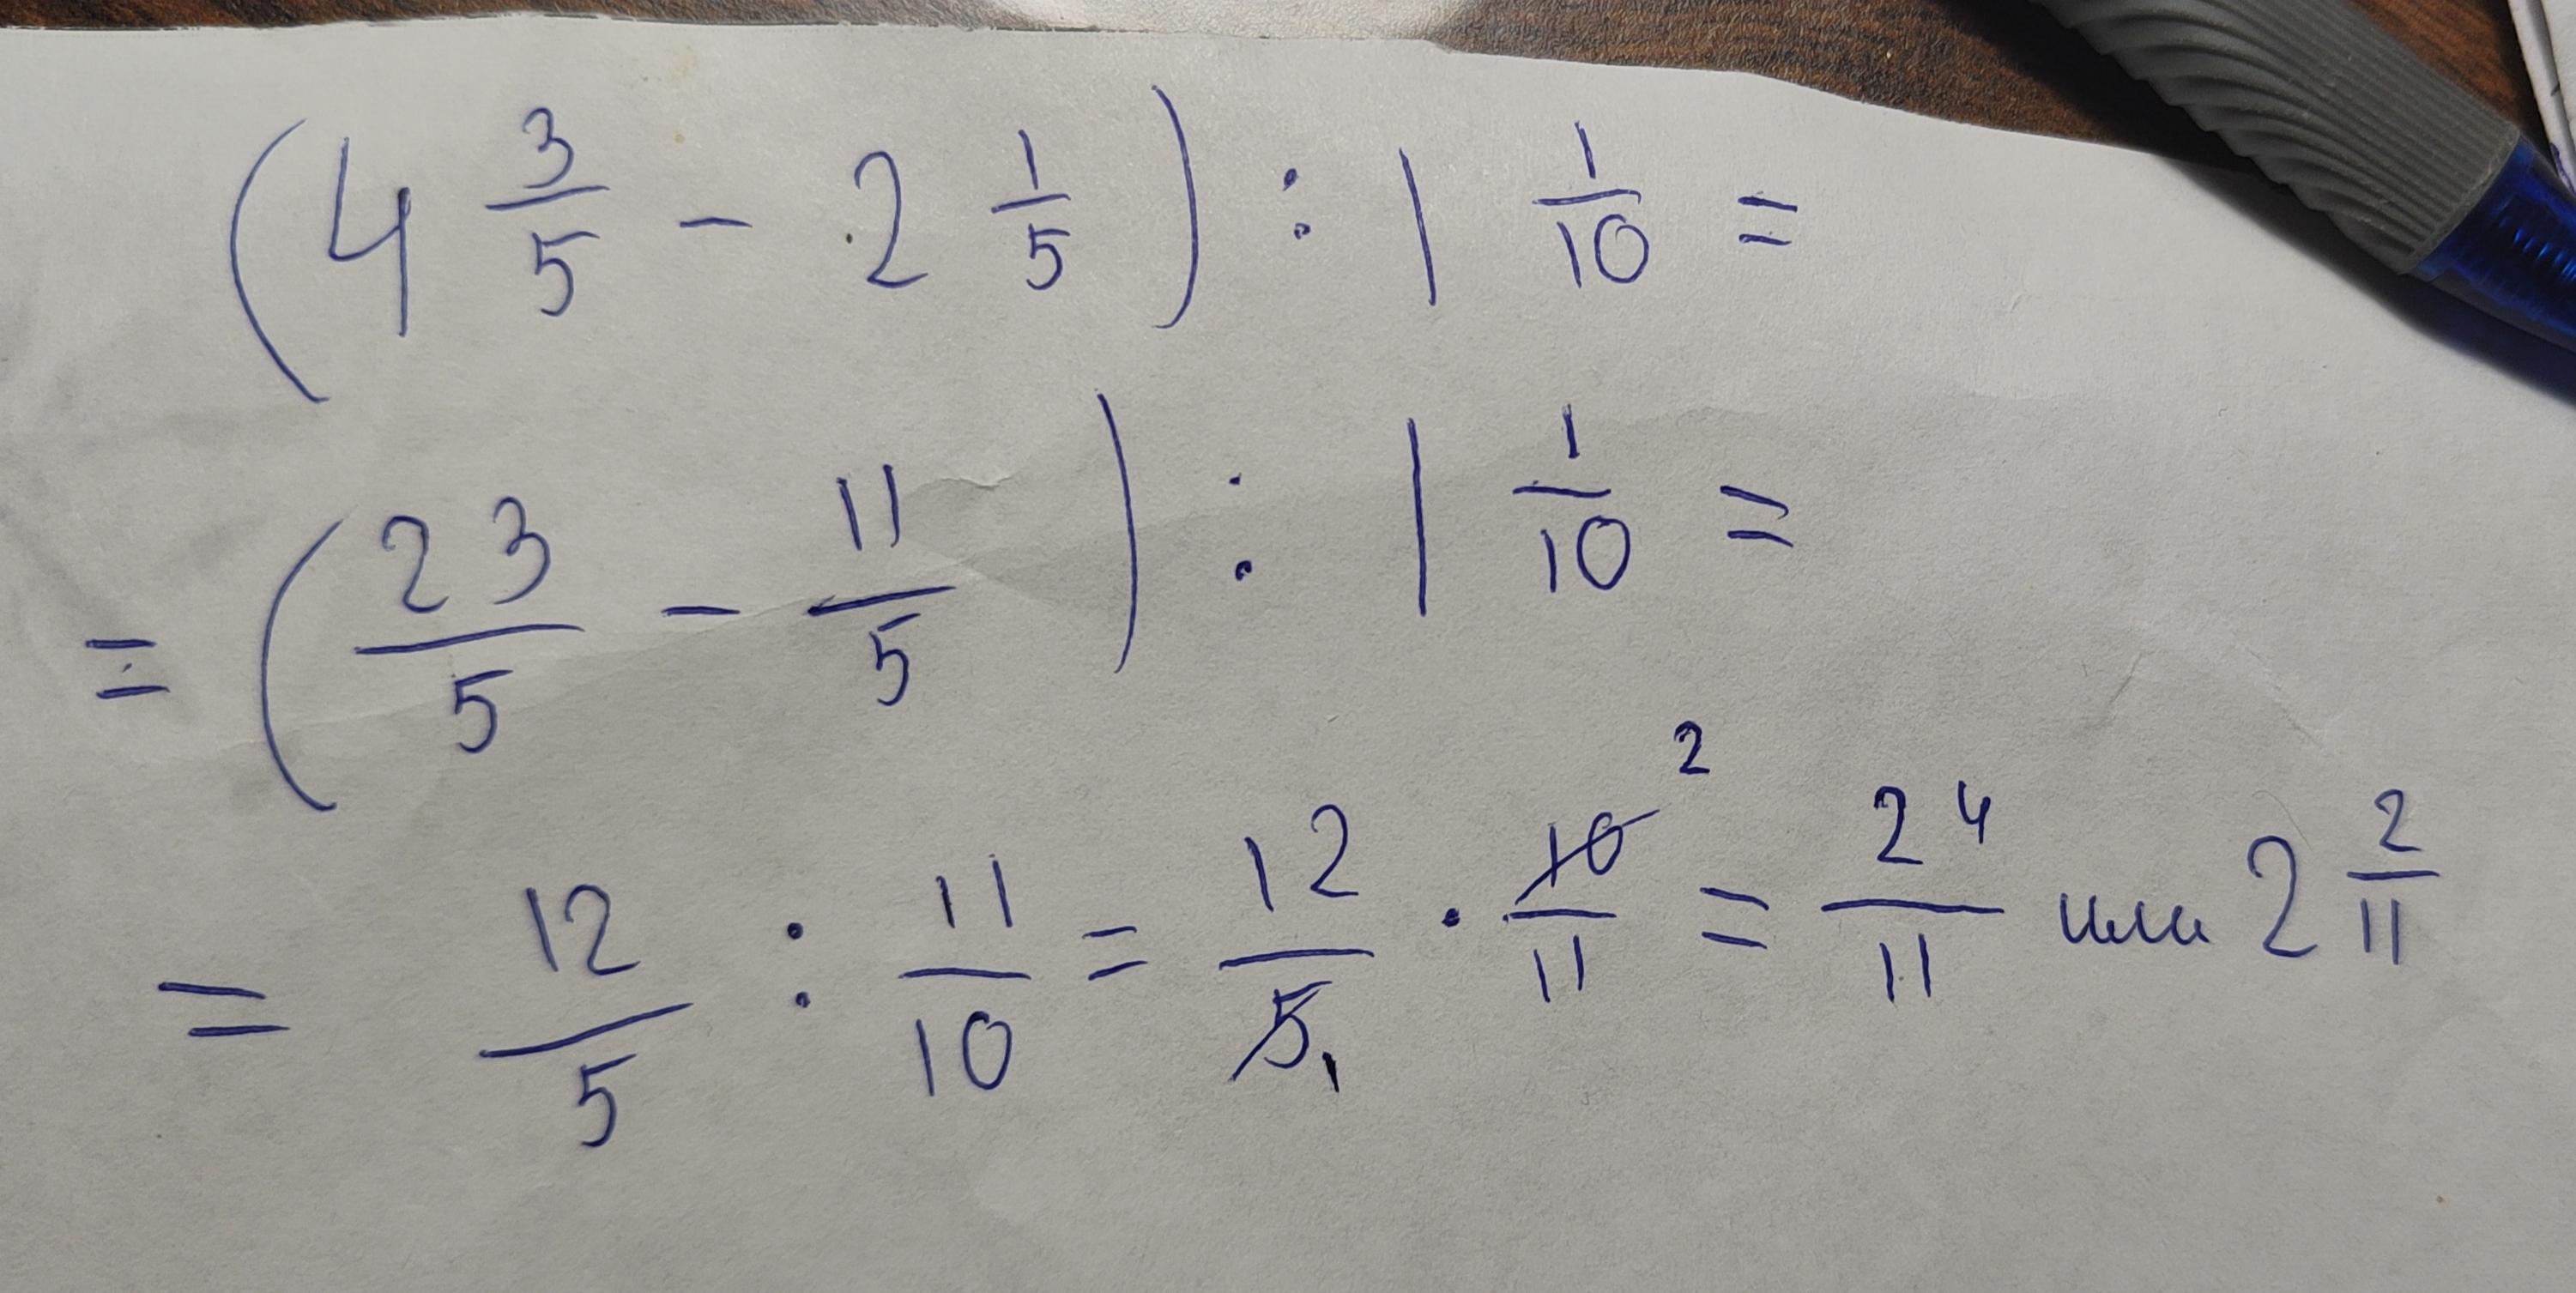 (4 3/5 - 2 1/5) : 1 1/10 =
= (23/5 - 11/5) : 1 1/10 =
= 12/5 : 11/10 = 12/5 1 · 10/11 2 = 24/11 или 2 2/11